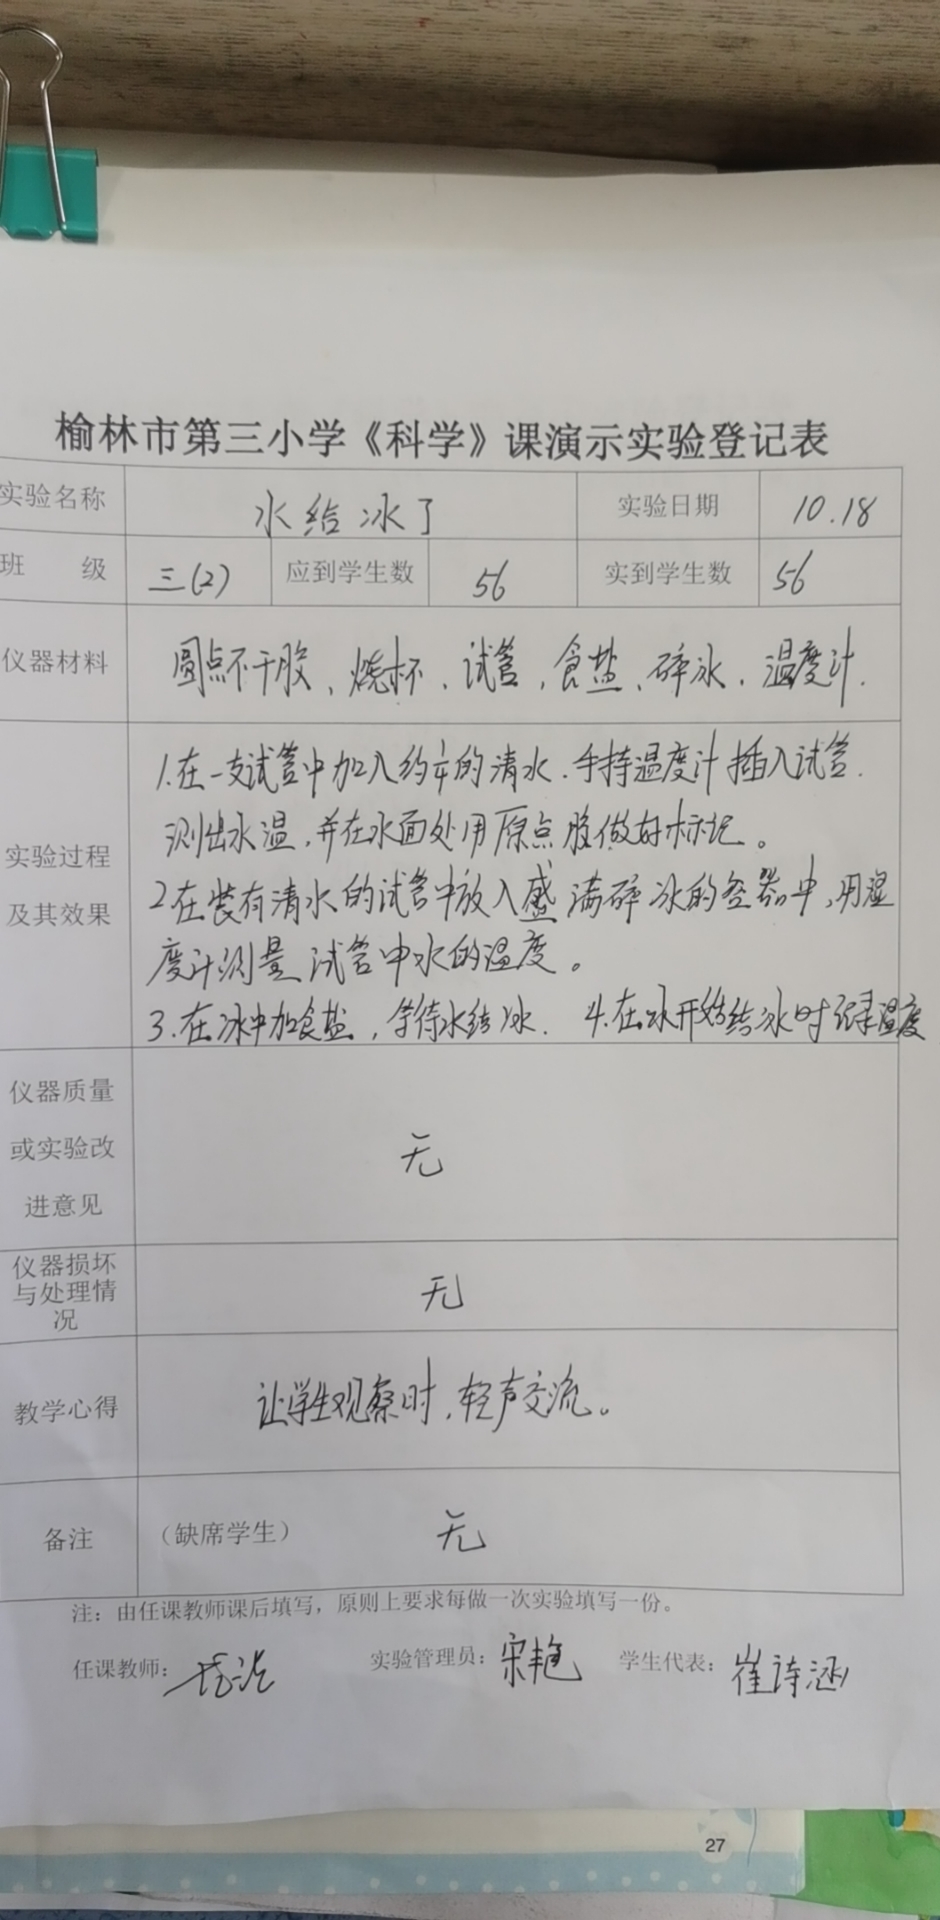 榆林市第三小学《科学》课演示实验登记表
实验名称 水给冰了 实验日期 10.18
班 级 三(2) 应到学生数 56 实到学生数 56
仪器材料 圆点不干胶、烧杯、试管、食盐、碎冰、温度计.
1.在一支试管中加入约的清水.手持温度计插入试管.
测出水温,并在水面处用原点胶做好标记。
实验过程
及其效果
2在装有清水的试管中放入盛满碎冰的容器中,用温
度计测量试管中水的温度。
3.在冰中加食盐,等待水结冰. 4.在水开始结冰时记录温度
仪器质量
或实验改
进意见
无
仪器损坏
与处理情
况
无
教学心得 让学生观察时,轻声交流。
备注 (缺席学生) 无
注:由任课教师课后填写,原则上要求每做一次实验填写一份。
任课教师: 实验管理员:宋艳 学生代表:崔诗涵
27